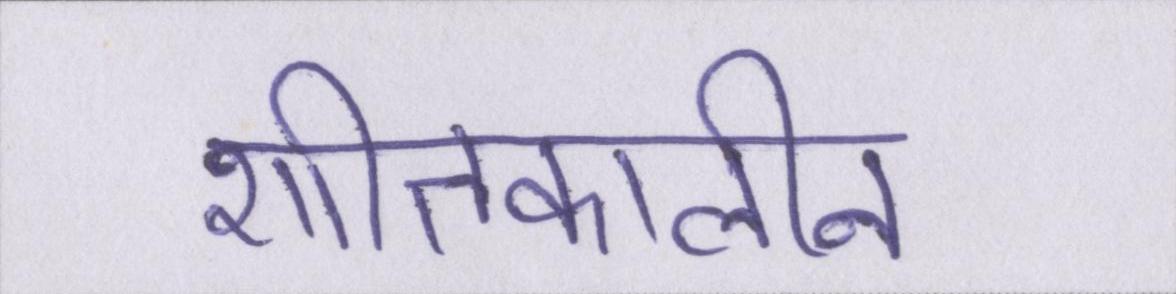 शीतकालीन